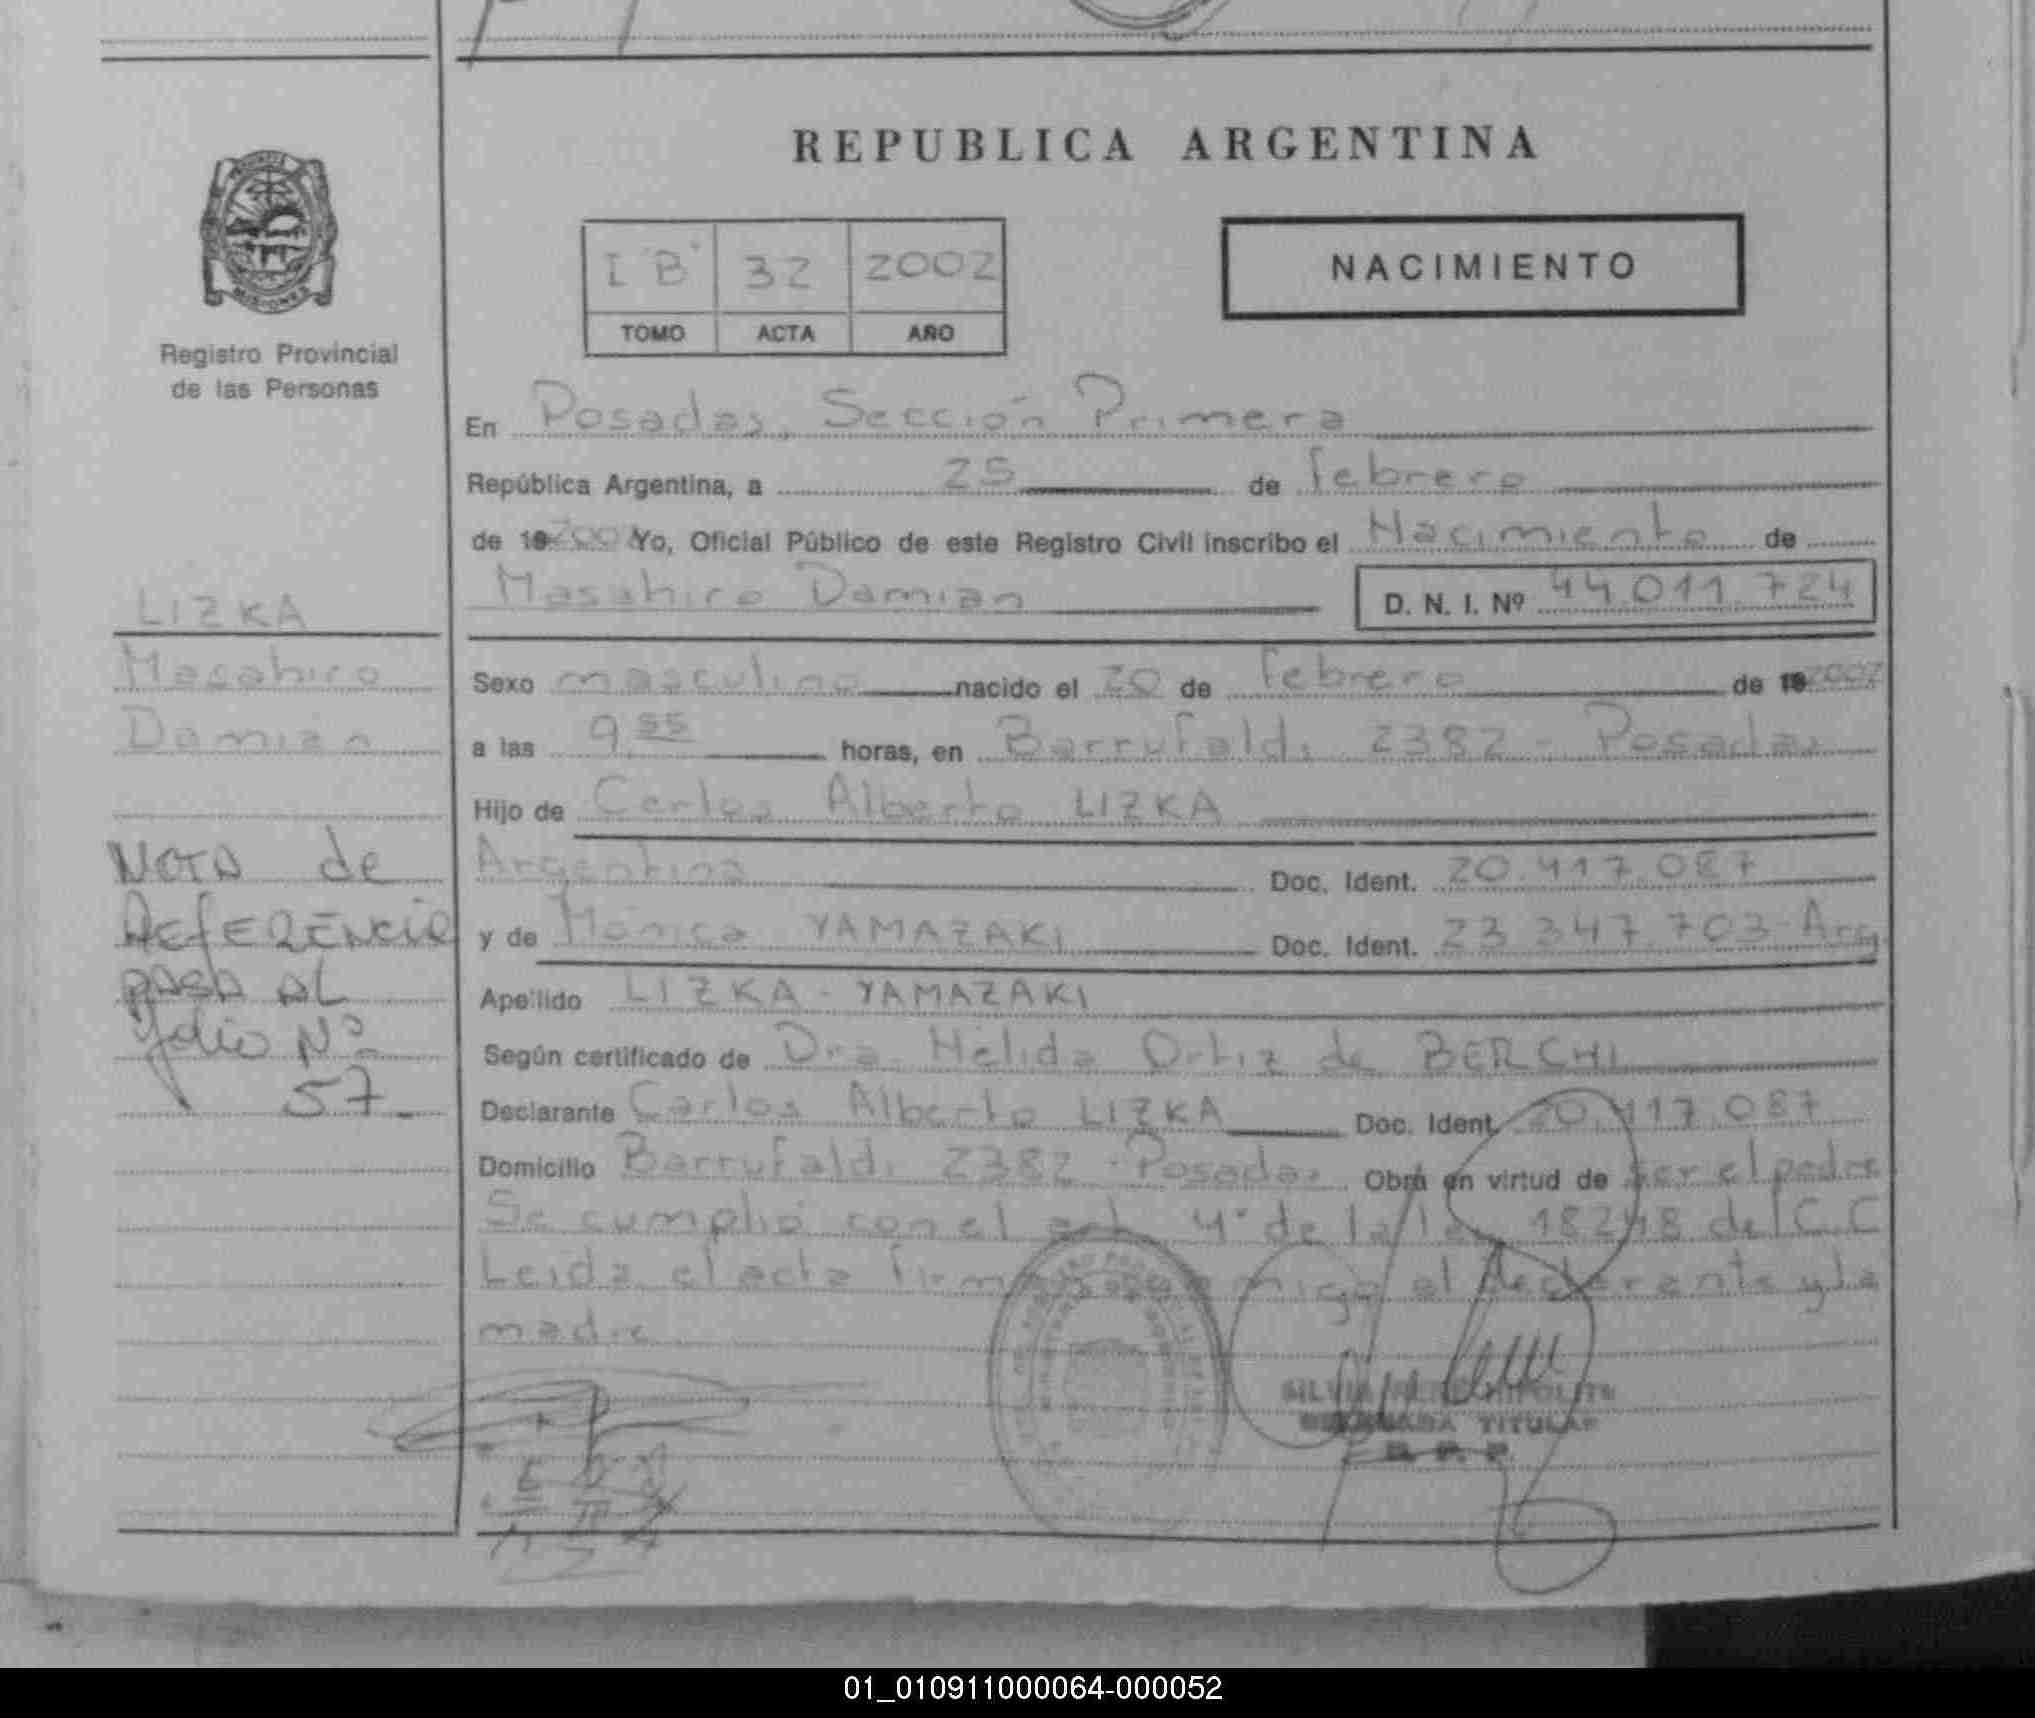 REPUBLICA ARGENTINA
I "B" 32 2002
TOMO ACTA AÑO
NACIMIENTO
MISIONES
Registro Provincial
de las Personas
En Posadas, Sección Primera
República Argentina, a 25 de febrero
de 19 2002 Yo, Oficial Público de este Registro Civil inscribo el Nacimiento de
Masahiro Damian D. N. I. Nº 44.011.724
LIZKA
Masahiro
Damian
Sexo masculino nacido el 20 de febrero de 19 2002
a las 9.55 horas, en Barrufaldi 2382 - Posadas
Hijo de Carlos Alberto LIZKA
Argentina Doc. Ident. 20.417.087
y de Mónica YAMAZAKI Doc. Ident. 23.347.703-Arg.
Apellido LIZKA - YAMAZAKI
Según certificado de Dra. Hélida Ortiz de BERCHI
Declarante Carlos Alberto LIZKA Doc. Ident. 20.417.087
Domicilio Barrufaldi 2382 - Posadas Obra en virtud de ser el padre
Se cumplió con el art. 4° de la ley 18248 del C.C
Leida el acta firman conmigo el declarante y la
madre
NOTA de
REFERENCIA
PASA AL
folio Nº
57-
SILVIA
TITULAR
R. P. P.
01_010911000064-000052